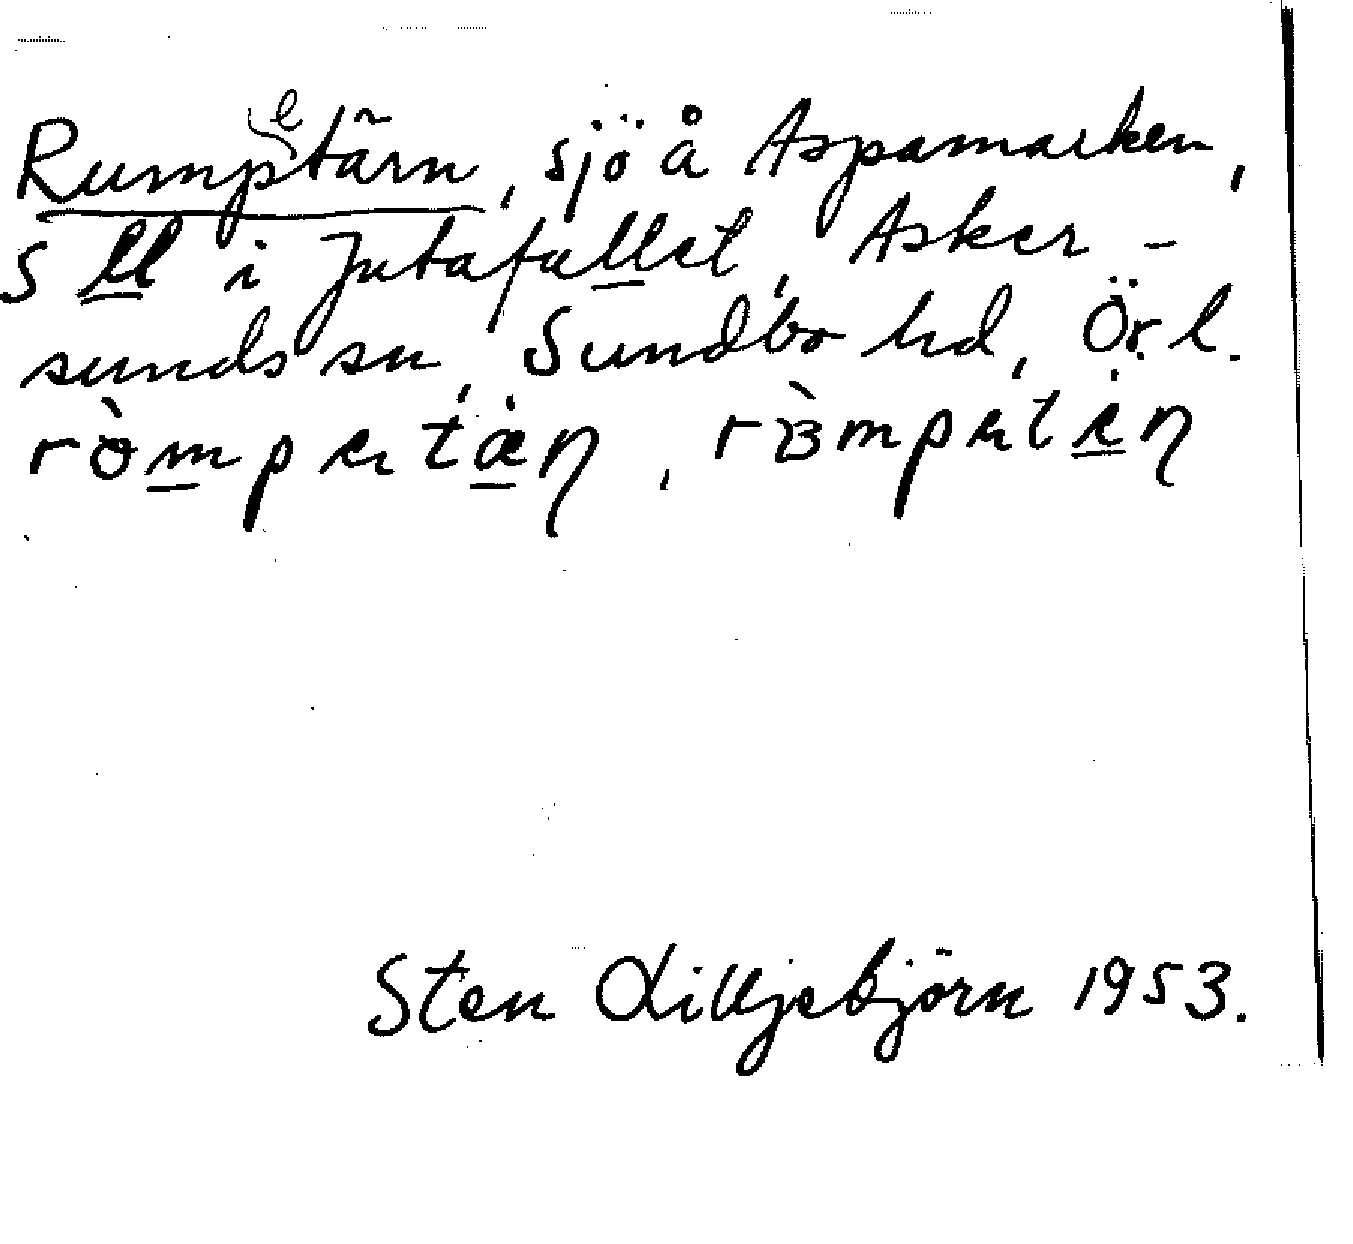 Rumpetärn, sjö å Aspamarken,
S ll i Jutafallet, Asker-
sunds sn, Sundbo hd, Ör. l.
ròmpɐtæ̇n, ròmpɐtėn
Sten Lilljebjörn 1953.